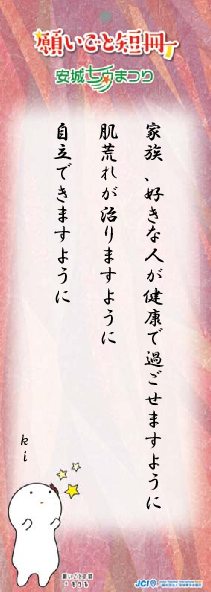 願いごと短冊
安城七夕まつり
家族、好きな人が健康で過ごせますように
肌荒れが治りますように
自立できますように
ki
願いごと短冊
JCI